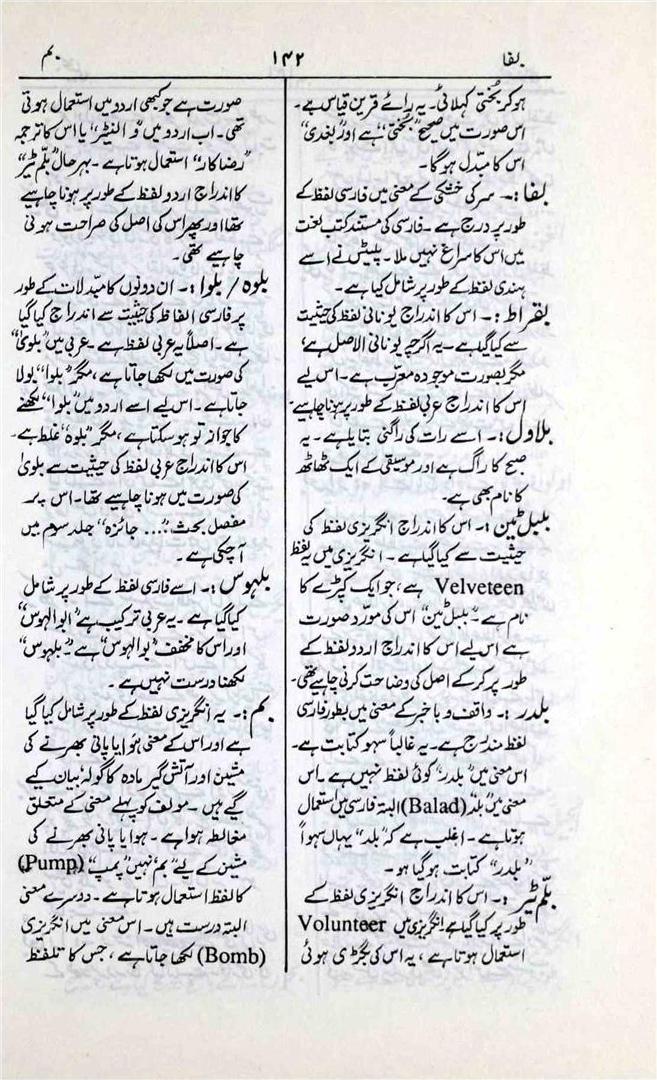 بفا
۱۴۲
بم
ہو کر بُختی کہلائی۔ یہ رائے قرین قیاس ہے۔
اس صورت میں صحیح "بُختی" ہے اور "بغدی"
اس کا مبدل ہوگا۔
بفا :۔ سر کی خشکی کے معنی میں فارسی لفظ کے
طور پر درج ہے۔ فارسی کی مستند کتب لغت
میں اس کا سراغ نہیں ملا۔ پلیٹس نے اسے
ہندی لفظ کے طور پر شامل کیا ہے۔
بقراط :۔ اس کا اندراج یونانی لفظ کی حیثیت
سے کیا گیا ہے۔ یہ اگرچہ یونانی الاصل ہے،
مگر بصورت موجودہ معرب ہے۔ اس لیے
اس کا اندراج عربی لفظ کے طور پر ہونا چاہیے۔
بلاول :۔ اسے رات کی راگنی بتایا ہے۔ یہ
صبح کا راگ ہے اور موسیقی کے ایک ٹھاٹھ
کا نام بھی ہے۔
بلبل ٹین :۔ اس کا اندراج انگریزی لفظ کی
حیثیت سے کیا گیا ہے۔ انگریزی میں یہ لفظ
Velveteen ہے، جو ایک کپڑے کا
نام ہے۔ "بلبل ٹین" اس کی مورّد صورت
ہے اس لیے اس کا اندراج اردو لفظ کے
طور پر کر کے اصل کی وضاحت کرنی چاہیے تھی۔
بلدر :۔ واقف و باخبر کے معنی میں بطور فارسی
لفظ مندرج ہے۔ یہ غالباً سہو کتابت ہے۔
اس معنی میں "بلدر" کوئی لفظ نہیں ہے۔ اس
معنی میں "بلد" (Balad) البتہ فارسی میں استعمال
ہوتا ہے۔ اغلب ہے کہ "بلد" یہاں سہواً
"بلدر" کتابت ہو گیا ہو۔
بلّم ٹیر :۔ اس کا اندراج انگریزی لفظ کے
طور پر کیا گیا ہے انگریزی میں Volunteer
استعمال ہوتا ہے، یہ اس کی بگڑی ہوئی
صورت ہے جو کبھی اردو میں استعمال ہوتی
تھی۔ اب اردو میں "والنیٹر" یا اس کا ترجمہ
"رضا کار" استعمال ہوتا ہے۔ بہرحال "بلّم ٹیر"
کا اندراج اردو لفظ کے طور پر ہونا چاہیے
تھا اور پھر اس کی اصل کی صراحت ہونی
چاہیے تھی۔
بلوہ / بلوا :۔ ان دونوں کا مبدلات کے طور
پر فارسی الفاظ کی حیثیت سے اندراج کیا گیا
ہے۔ اصلاً یہ عربی لفظ ہے۔ عربی میں "بلویٰ"
کی صورت میں لکھا جاتا ہے، مگر "بلوا" بولا
جاتا ہے۔ اس لیے اسے اردو میں "بلوا" لکھنے
کا جواز تو ہو سکتا ہے، مگر "بلوہ" غلط ہے۔
اس کا اندراج عربی لفظ کی حیثیت سے بلویٰ
کی صورت میں ہونا چاہیے تھا۔ اس پر
مفصل بحث "... جائزہ" جلد سوم میں
آ چکی ہے۔
بلہوس :۔ اسے فارسی لفظ کے طور پر شامل
کیا گیا ہے۔ یہ عربی ترکیب ہے "ابوالہوس"
اور اس کا مخفف "بوالہوس" ہے۔ "بلہوس"
لکھنا درست نہیں ہے۔
بم :۔ یہ انگریزی لفظ کے طور پر شامل کیا گیا
ہے اور اس کے معنی ہوا یا پانی بھرنے کی
مشین اور آتش گیر مادہ کا گولہ بیان کیے
گیے ہیں۔ مولف کو پہلے معنی کے متعلق
مغالطہ ہوا ہے۔ ہوا یا پانی بھرنے کی
مشین کے لیے "بم" نہیں "پمپ" (Pump)
کا لفظ استعمال ہوتا ہے۔ دوسرے معنی
البتہ درست ہیں۔ اس معنی میں انگریزی
(Bomb) لکھا جاتا ہے، جس کا تلفظ